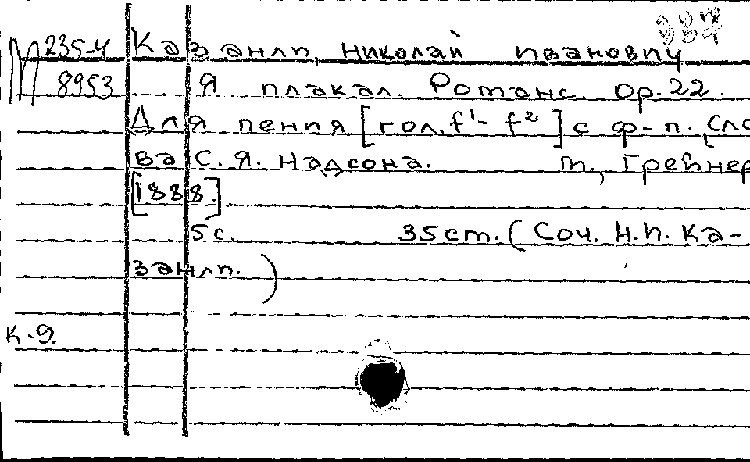 М 235-4 Казанли, Николай Иванович
8953 Я плакал. Романс. op.22.
Для пения [гол. f¹- f²] с ф-п. Сло
ва С. Я. Надсона. М., Грейнер
[1888.]
5 с. 35 cm. (Соч. Н.И. Ка-
занли.)
К.9.